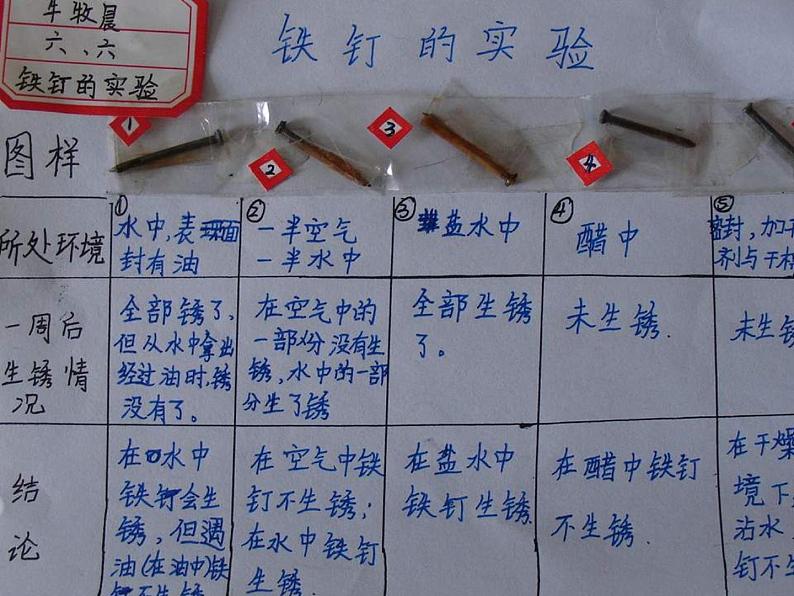 牛牧晨
六、六
铁钉的实验
铁钉的实验
1
2
3
4
图样
所处环境
①
水中,表面
封有油
②
一半空气
一半水中
③
盐水中
④
醋中
⑤
密封,加干
剂与干
一周后
生锈情
况
全部锈了,
但从水中拿出
经过油时,锈
没有了。
在空气中的
一部份没有生
锈,水中的一部
分生了锈
全部生锈
了。
未生锈.
未生锈
结
论
在水中
铁钉会生
锈,但遇
油(在油中)铁
钉不生锈
在空气中铁
钉不生锈;
在水中铁钉
生锈.
在盐水中
铁钉生锈.
在醋中铁钉
不生锈.
在干燥
境下
沾水
钉不